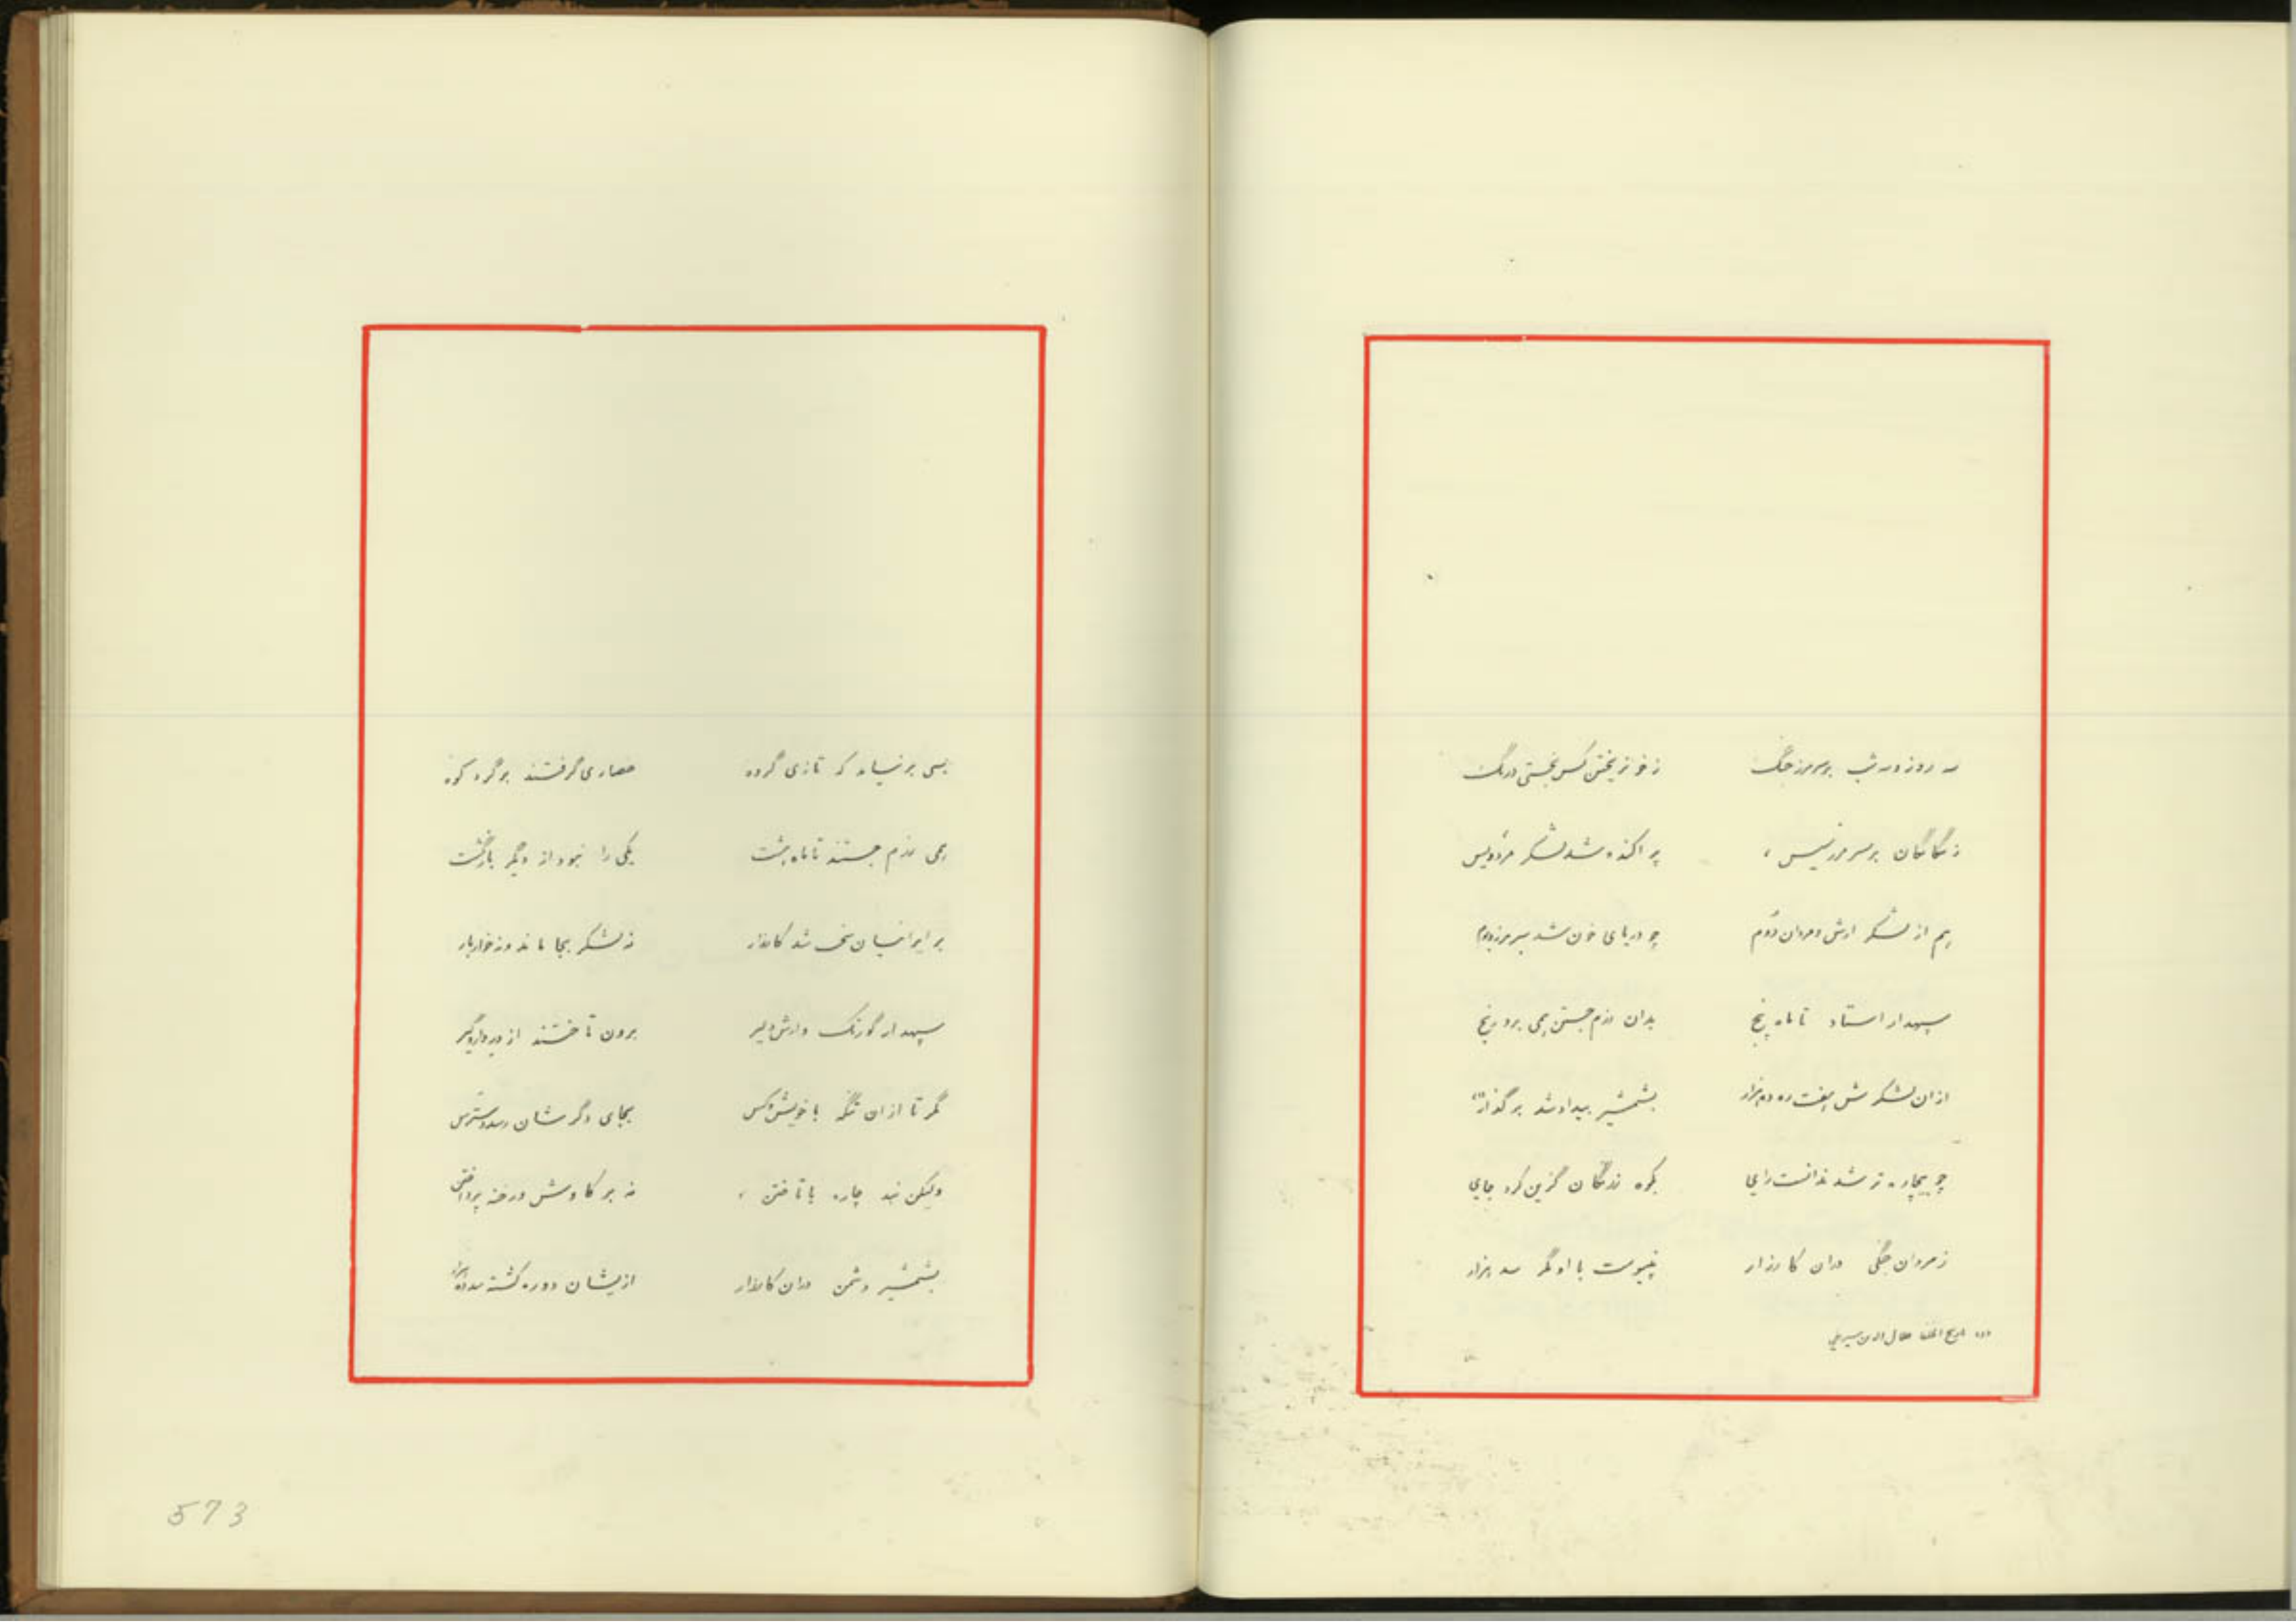 سه روز و سه شب بر سر مرز جنگ ز خونریختن کس نجستی درنگ
پراکنده شد لشکر
هم از لشکر ارش و مردان چو دریای خون شد سر مرز و بوم
سپهدار استاد تا ماه پنج بدان رزم جستن همی برد رنج
ازان لشکرش هفت ره ده هزار بشمشیر بیداد شد برگذار
چو بیچاره تر شد ندانست رای بکوه گزین کرد جای
ز مردان جنگی دران کارزار نپیوست با او مگر سه هزار
بسی برنیامد که تازی گروه حصاری گرفتند بر گرد کوه
همی رزم جستند تا ماه هشت یکی را نبود از دیگر بازگشت
بر ایرانیان سخت شد کارزار نه لشکر بجا ماند و نه خواربار
سپهدار گورنگ و ارش دلیر برون تاختند از در داروگیر
مگر تا ازان تنگه با خویش و کس بجای دگرشان رسد دسترس
ولیکن نبد چاره با تاختن نه بر کاوش و رخنه پرداختن
بشمشیر دشمن دران کارزار ازیشان دوره کشته شد ده هزار
573